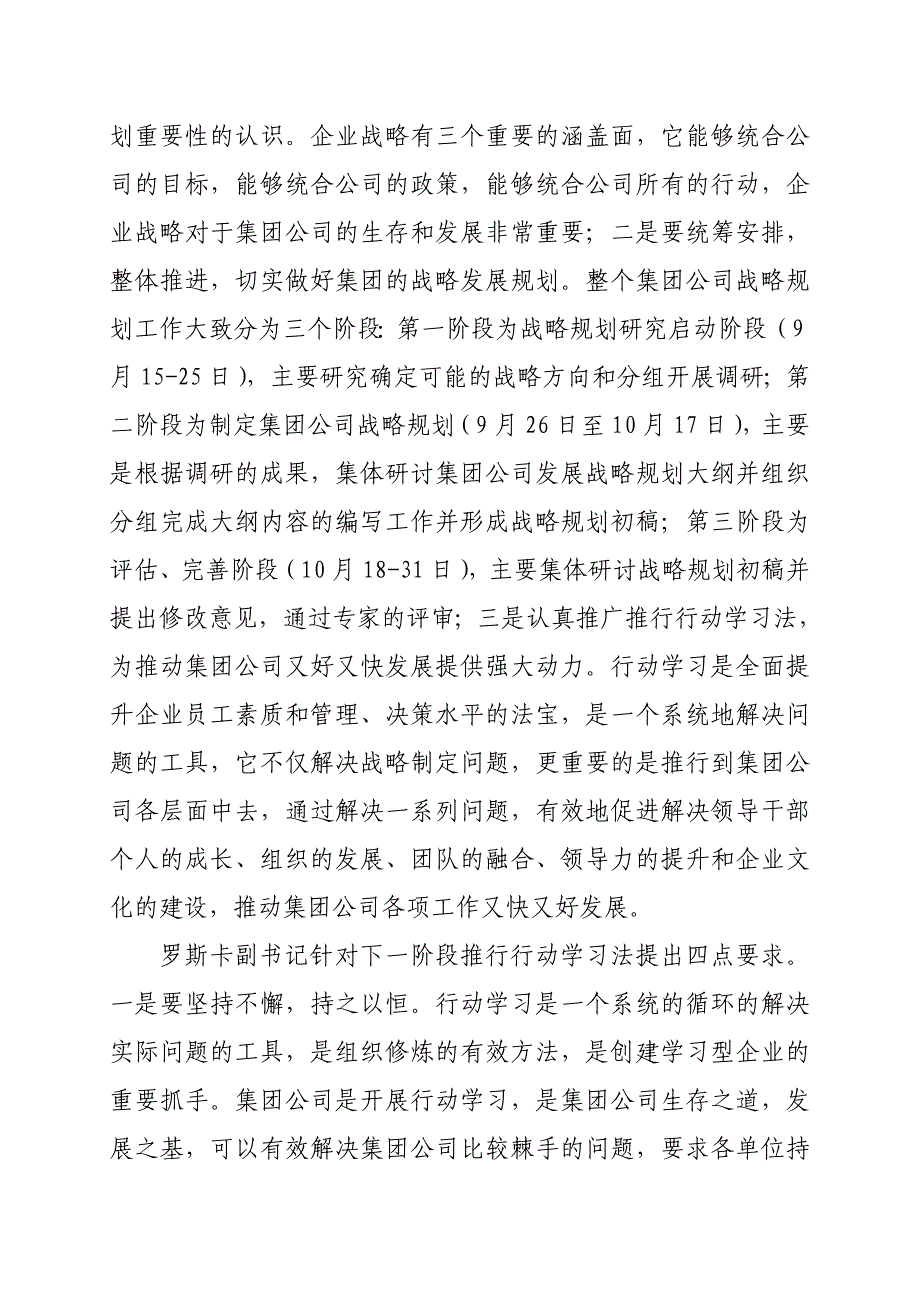 划重要性的认识。企业战略有三个重要的涵盖面，它能够统合公
司的目标，能够统合公司的政策，能够统合公司所有的行动，企
业战略对于集团公司的生存和发展非常重要；二是要统筹安排，
整体推进，切实做好集团的战略发展规划。整个集团公司战略规
划工作大致分为三个阶段：第一阶段为战略规划研究启动阶段（9
月15-25日），主要研究确定可能的战略方向和分组开展调研；第
二阶段为制定集团公司战略规划（9月26日至10月17日），主要
是根据调研的成果，集体研讨集团公司发展战略规划大纲并组织
分组完成大纲内容的编写工作并形成战略规划初稿；第三阶段为
评估、完善阶段（10月18-31日），主要集体研讨战略规划初稿并
提出修改意见，通过专家的评审；三是认真推广推行行动学习法，
为推动集团公司又好又快发展提供强大动力。行动学习是全面提
升企业员工素质和管理、决策水平的法宝，是一个系统地解决问
题的工具，它不仅解决战略制定问题，更重要的是推行到集团公
司各层面中去，通过解决一系列问题，有效地促进解决领导干部
个人的成长、组织的发展、团队的融合、领导力的提升和企业文
化的建设，推动集团公司各项工作又快又好发展。
罗斯卡副书记针对下一阶段推行行动学习法提出四点要求。
一是要坚持不懈，持之以恒。行动学习是一个系统的循环的解决
实际问题的工具，是组织修炼的有效方法，是创建学习型企业的
重要抓手。集团公司是开展行动学习，是集团公司生存之道，发
展之基，可以有效解决集团公司比较棘手的问题，要求各单位持